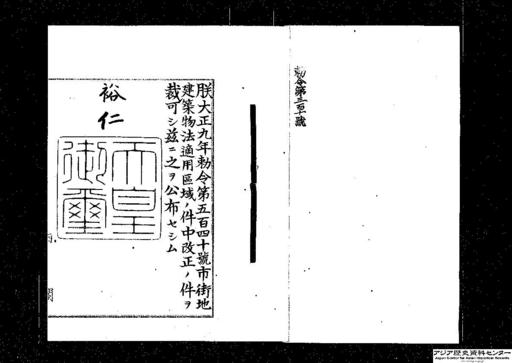 勅令第三百十號
朕大正九年勅令第五百四十號市街地
建築物法適用區域ノ件中改正ノ件ヲ
裁可シ茲ニ之ヲ公布セシム
裕仁
天皇
御璽
アジア歴史資料センター
Japan Center for Asian Historical Records